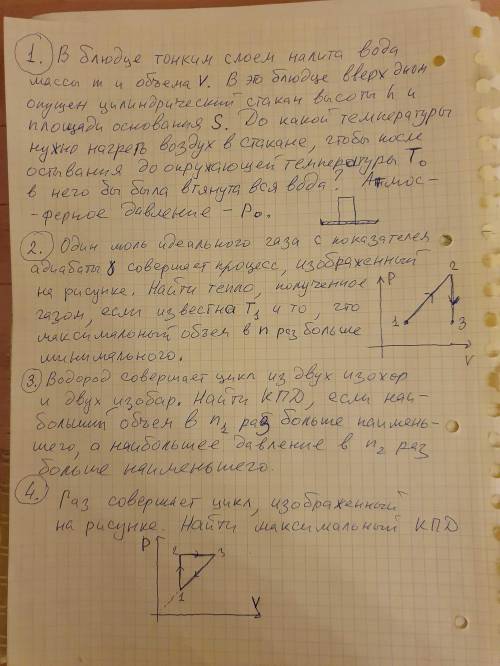 1. В блюдце тонким слоем налита вода
массы m и объема V. В это блюдце вверх дном
опущен цилиндрический стакан высоты h и
площади основания S. До какой температуры
нужно нагреть воздух в стакане, чтобы после
остывания до окружающей температуры T₀
в него бы была втянута вся вода? Атмос-
-ферное давление - P₀.
2. Один моль идеального газа с показателем
адиабаты γ совершает процесс, изображенный
на рисунке. Найти тепло, полученное
газом, если известна T₁ и то, что
максимальный объем в n раз больше
минимального.
P
2
1
3
V
3. Водород совершает цикл из двух изохор
и двух изобар. Найти КПД, если наи-
больший объем в n₁ раз больше наимень-
шего, а наибольшее давление в n₂ раз
больше наименьшего.
4. Газ совершает цикл, изображенный
на рисунке. Найти максимальный КПД
P
2
3
1
V